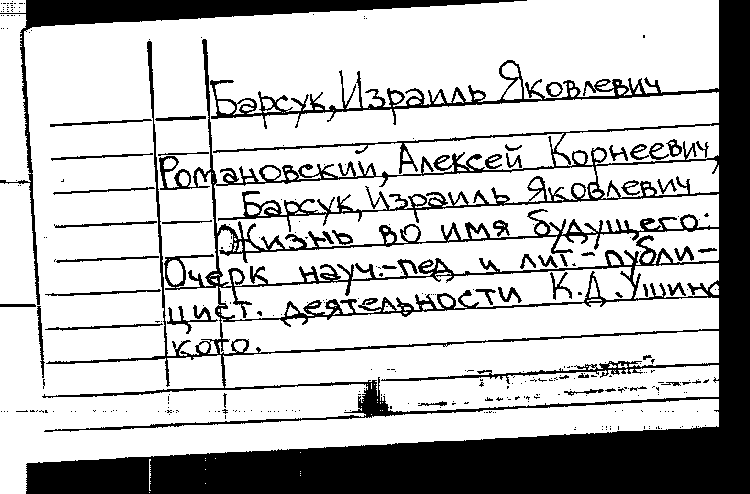 Барсук, Израиль Яковлевич
Романовский, Алексей Корнеевич,
Барсук, Израиль Яковлевич
Жизнь во имя будущего:
Очерк науч.-пед. и лит.-публи-
цист. деятельности К.Д. Ушинс
кого.